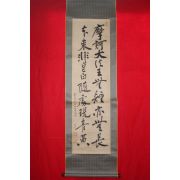 摩訶大法王無短亦無長
本来非皂白隨處現青黄